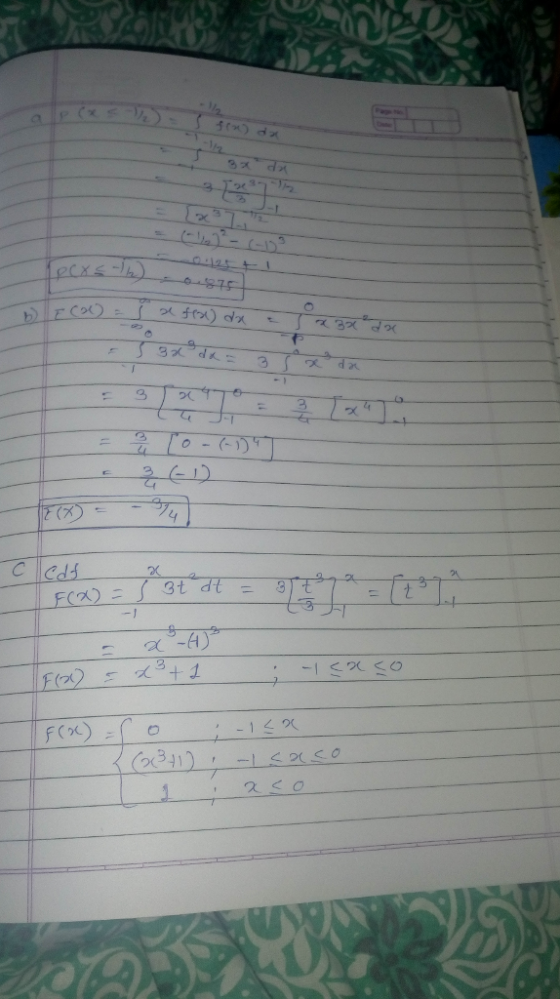 Page No.
Date
a P(x ≤ -1/2) = ∫_{-1}^{-1/2} f(x) dx
= ∫_{-1}^{-1/2} 3x² dx
= 3 [x³/3]_{-1}^{-1/2}
= [x³]_{-1}^{-1/2}
= (-1/2)³ - (-1)³
= -0.125 + 1
P(X ≤ -1/2) = 0.875
b) E(X) = ∫_{-∞}^{∞} x f(x) dx = ∫_{-1}^{0} x 3x² dx
= ∫_{-1}^{0} 3x³ dx = 3 ∫_{-1}^{0} x³ dx
= 3 [x⁴/4]_{-1}^{0} = 3/4 [x⁴]_{-1}^{0}
= 3/4 [0 - (-1)⁴]
= 3/4 (-1)
E(X) = -3/4
C Cdf
F(x) = ∫_{-1}^{x} 3t² dt = 3[t³/3]_{-1}^{x} = [t³]_{-1}^{x}
= x³ - (-1)³
F(x) = x³ + 1 ; -1 ≤ x ≤ 0
F(x) = { 0 ; -1 ≤ x
(x³+1) ; -1 ≤ x ≤ 0
1 ; x ≤ 0